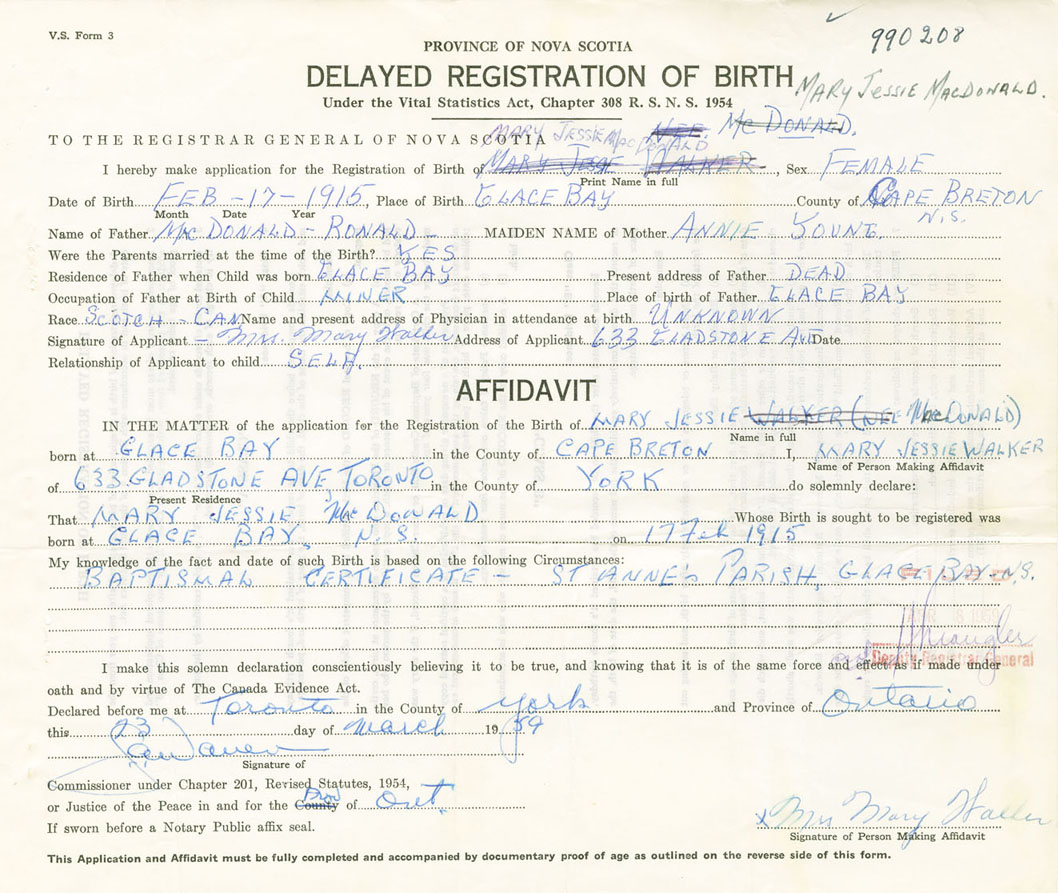 V.S. Form 3
990208
PROVINCE OF NOVA SCOTIA
DELAYED REGISTRATION OF BIRTH
MARY JESSIE MACDONALD.
Under the Vital Statistics Act, Chapter 308 R. S. N. S. 1954
NEE. McDONALD.
MARY JESSIE MacDONALD
TO THE REGISTRAR GENERAL OF NOVA SCOTIA
I hereby make application for the Registration of Birth of MARY JESSE WALKER, Sex FEMALE
Print Name in full
Date of Birth FEB -17-1915, Place of Birth GLACE BAY County of CAPE BRETON
N.S.
Month Date Year
Name of Father MacDONALD - RONALD - MAIDEN NAME of Mother ANNIE YOUNG.
Were the Parents married at the time of the Birth? YES
Residence of Father when Child was born GLACE BAY Present address of Father DEAD
Occupation of Father at Birth of Child MINER Place of birth of Father GLACE BAY
Race SCOTCH - CAN Name and present address of Physician in attendance at birth UNKNOWN
Signature of Applicant - Mrs. Mary Walker Address of Applicant 633 GLADSTONE AVE Date
Relationship of Applicant to child SELF.
AFFIDAVIT
IN THE MATTER of the application for the Registration of the Birth of MARY JESSIE WALKER (NEE MacDONALD)
Name in full
born at GLACE BAY in the County of CAPE BRETON I, MARY JESSIE WALKER
Name of Person Making Affidavit
of 633 GLADSTONE AVE, TORONTO in the County of YORK do solemnly declare:
Present Residence
That MARY JESSIE MacDONALD Whose Birth is sought to be registered was
born at GLACE BAY, N.S. on 17 Feb 1915
My knowledge of the fact and date of such Birth is based on the following Circumstances:
BAPTISMAL CERTIFICATE - ST ANNE'S PARISH, GLACE BAY-N.S.
Deputy Registrar General
I make this solemn declaration conscientiously believing it to be true, and knowing that it is of the same force and effect as if made under
oath and by virtue of The Canada Evidence Act.
Declared before me at Toronto in the County of York and Province of Ontario
this 23 day of March 1959
Signature of
Commissioner under Chapter 201, Revised Statutes, 1954,
or Justice of the Peace in and for the County of Ont.
If sworn before a Notary Public affix seal.
x Mrs Mary Walker
Signature of Person Making Affidavit
This Application and Affidavit must be fully completed and accompanied by documentary proof of age as outlined on the reverse side of this form.